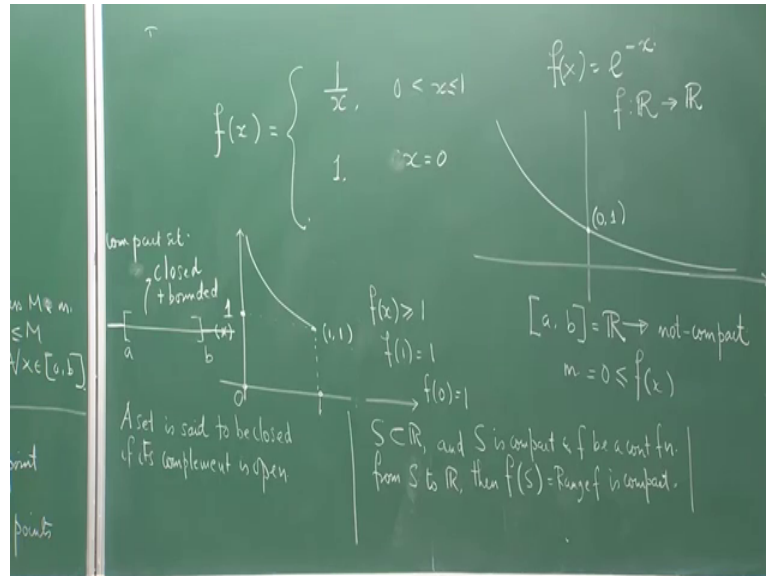 ≤ M
∀x∈[a,b]
points
f(x) = { 1/x, 0 < x ≤ 1
1, x = 0
f(x) = e^{-x}
f: ℝ → ℝ
(0,1)
compact set:
closed
+ bounded
[ ] (x)
a b
1
(1,1)
0
f(x) ≥ 1
f(1) = 1
f(0) = 1
[a, b] = ℝ → not-compact
m = 0 ≤ f(x)
A set is said to be closed
if its complement is open
S ⊂ ℝ, and S is compact & f be a cont fn.
from S to ℝ, then f(S) = Range f is compact.